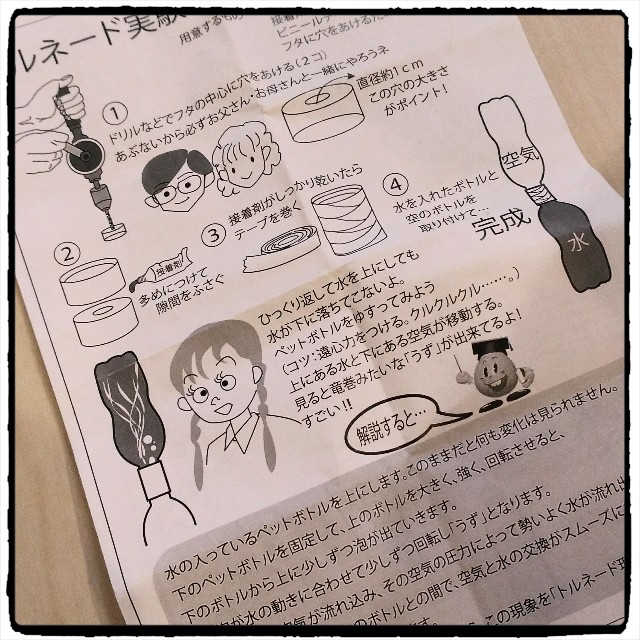 ルネード実験
用意するもの
フタに穴をあけるた
①
ドリルなどでフタの中心に穴をあける(2コ)
あぶないから必ずお父さん・お母さんと一緒にやろうネ
直径約1cm
この穴の大きさ
がポイント!
②
接着剤
多めにつけて
隙間をふさぐ
③
接着剤がしっかり乾いたら
テープを巻く
④
水を入れたボトルと
空のボトルを
取り付けて…
完成
空気
水
ひっくり返して水を上にしても
水が下に落ちてこないよ。
ペットボトルをゆすってみよう
(コツ:遠心力をつける。クルクルクル……。)
上にある水と下にある空気が移動する。
見ると竜巻みたいな「うず」が出来てるよ!
すごい!!
解説すると…
水の入っているペットボトルを上にします。このままだと何も変化は見られません。
下のペットボトルを固定して、上のボトルを大きく、強く、回転させると、
下のボトルから上に少しずつ泡が出ていきます。
が水の動きに合わせて少しずつ回転し「うず」となります。
気が流れ込み、その空気の圧力によって勢いよく水が流れ出
のボトルとの間で、空気と水の交換がスムーズに
この現象を「トルネード現